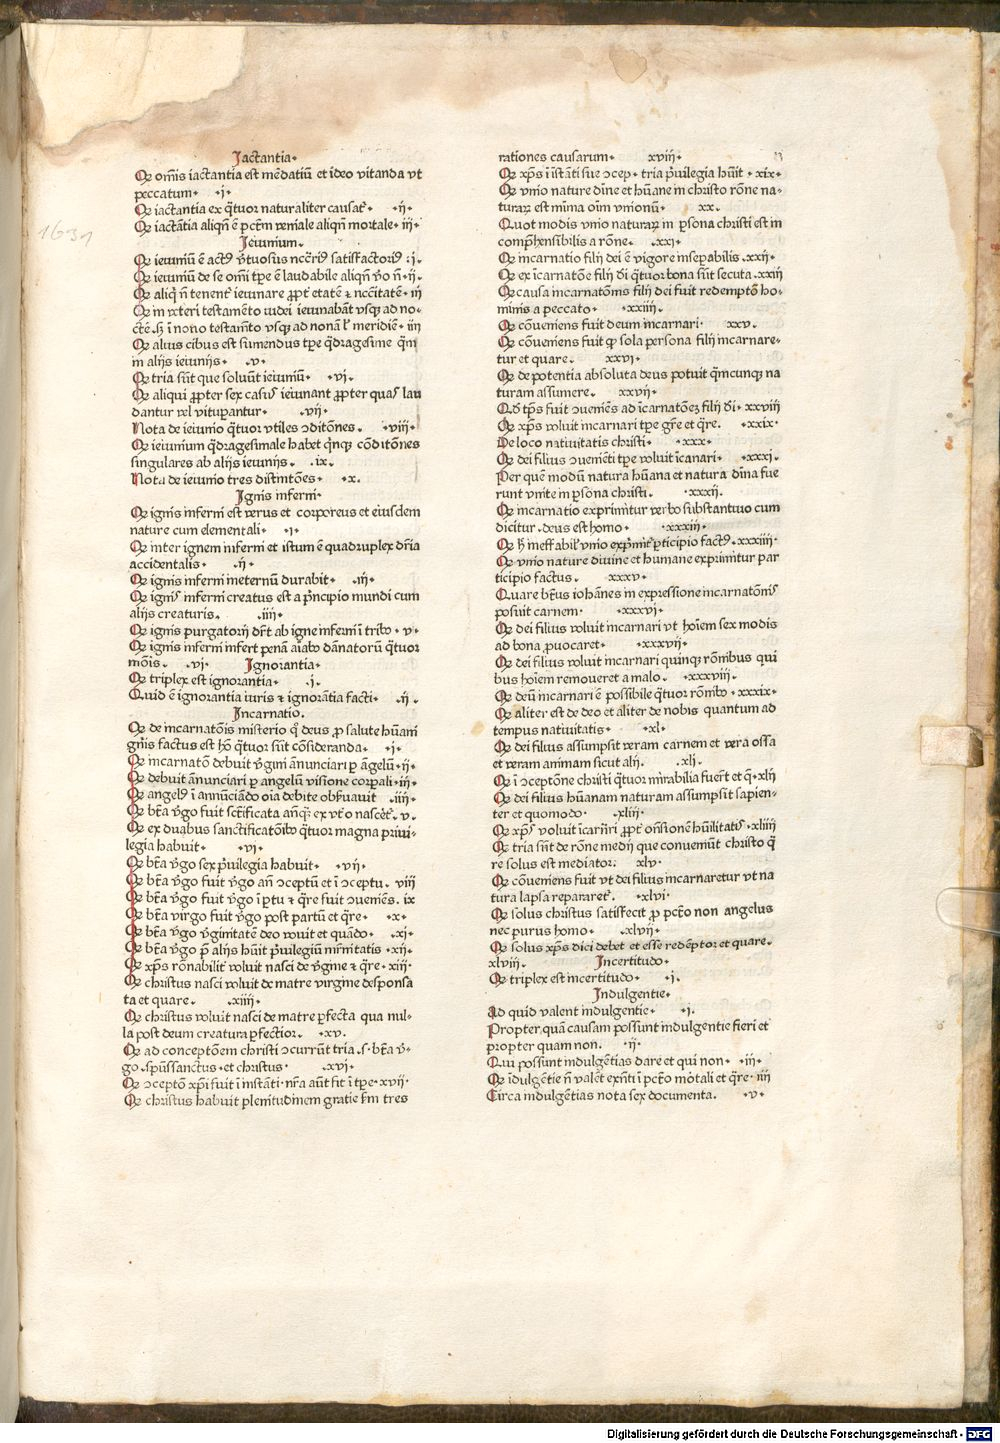 Jactantia.
Q oīs iactantia est mēdatiū et ideo vitanda vt
peccatum. .i.
Q iactantia ex q̄tuor naturaliter causat᷑. .ii.
Q iactātia aliqñ ē pctm̄ veniale aliqñ mortale. iii.
Jeiunium.
Q ieiuniū ē actꝰ v̄tuosus ncc̄riꝰ satisfactoriꝰ .i.
Q ieiuniū de se om̄i tꝑe ē laudabile aliqñ v̄o ñ .ii.
Q aliq̄ ñ tenent᷑ ieiunare ꝓpt᷑ etatē ⁊ ncc̄itatē. iii
Q in veteri testamēto iudei ieiunabāt vsqꝫ ad no-
ctē ſꝫ ī nouo testam̄to vsqꝫ ad nonā ł meridiē. iiii
Q alius cibus est sumendus tꝑe q̄dragesime q̄m
in alijs ieiunijs. .v.
Q tria sūt que soluūt ieiuniū. .vi.
Q aliqui ꝓpter sex casus ieiunant ꝓpter quas lau
dantur vel vituꝑantur. .vii.
Nota de ieiunio q̄tuor vtiles ↄditōnes. .viii.
Q ieiunium q̄dragesimale habet q̄nqꝫ cōditōnes
singulares ab alijs ieiunijs. .ix.
Nota de ieiunio tres distinctōes. .x.
Jgnis inferni.
Q ignis inferni est verus et corporeus et eiusdem
nature cum elementali. .i.
Q inter ignem inferni et istum ē quadruplex dr̄ia
accidentalis. .ii.
Q ignis inferni ineternū durabit. .iii.
Q ignis inferni creatus est a p̄ncipio mundi cum
alijs creaturis. .iiii.
Q ignis purgatorij dr̄t ab igne inferni ī tribꝰ. v.
Q ignis inferni infert penā aīabꝰ dānatorū q̄tuor
mōis. .vi. Jgnorantia.
Q triplex est ignorantia. .i.
Quid ē ignorantia iuris ⁊ ignorātia facti. .ii.
Jncarnatio.
Q de incarnatōis misterio q̄ deus ꝓ salute hūani
gn̄is factus est hō q̄tuor sūt cōsideranda. .i.
Q incarnatō debuit v̄gini ānunciari ꝑ āgelū. ii.
Q debuit ānunciari ꝑ angelū visione corꝑali. iii.
Q angelꝰ ī annūciādo oīa debite obseruauit .iiii.
Q bt̄a v̄go fuit sct̄ificata añqꝫ ex vt̄o nascet᷑. v.
Q ex duabus sanctificatōibꝰ q̄tuor magna priui-
legia habuit. .vi.
Q bt̄a v̄go sex p̄uilegia habuit. .vii.
Q bt̄a v̄go fuit v̄go añ ↄceptū et ī ↄceptu. viii
Q bt̄a v̄go fuit v̄go ī ꝑtu ⁊ q̄re fuit ↄueniēs. ix
Q bt̄a virgo fuit v̄go post partū et q̄re. .x.
Q bt̄a v̄go v̄ginitatē deo vouit et quādo. .xi.
Q bt̄a v̄go p̄ alijs hūit p̄uilegiū mr̄nitatis .xii.
Q xp̄s rōnabilit᷑ voluit nasci de v̄gine ⁊ q̄re. xiii.
Q christus nasci voluit de matre virgine desponsa
ta et quare. .xiiii.
Q christus voluit nasci de matre ꝑfecta qua nul-
la post deum creatura ꝑfectior. .xv.
Q ad conceptōem christi ↄcurrūt tria .s. bt̄a v̄-
go .spūssanctus .et christus. .xvi.
Q ↄceptō xp̄i fuit ī instāti .nr̄a aūt fit ī tꝑe. xvii.
Q christus habuit plenitudinem gratie sm̄ tres
rationes causarum. xviii.
Q xp̄s ī īstāti sue ↄcep. tria p̄uilegia hūit. xix.
Q vnio nature dīne et hūane in christo rōne na-
turaꝝ est mīma oīm vnionū. xx.
Quot modis vnio naturaꝝ in ꝑsona christi est in
comp̄hensibilis a rōne. .xxi.
Q incarnatio filij dei ē vigore inseꝑabilis. xxii.
Q ex īcarnatōe filij di q̄tuor bona sūt secuta. xxiii
Q causa incarnatōnis filij dei fuit redemptō ho-
minis a peccato. .xxiiii.
Q cōueniens fuit deum incarnari. xxv.
Q cōueniens fuit q̄ sola persona filij incarnare-
tur et quare. xxvi.
Q de potentia absoluta deus potuit q̄mcunqꝫ na
turam assumere. xxvii.
Qd̄ tꝑs fuit ↄueniēs ad īcarnatōeꝫ filij di. xxviii
Q xp̄s voluit incarnari tꝑe gr̄e et q̄re. .xxix.
De loco natiuitatis christi. .xxx.
Q dei filius ↄuenīeti tꝑe voluit īcanari. .xxxi.
Per quē modū natura hūana et natura diuīna fue
runt vnite in ꝑsona christi. .xxxii.
Q incarnatio exprimitur verbo substantiuo cum
dicitur .deus est homo. .xxxiii.
Q hꝫ ineffabiłꝭ vnio exp̄mit᷑ ꝑticipio factꝰ. xxxiiii.
Q vnio nature diuine et humane exprimitur par
ticipio factus. xxxv.
Quare bt̄us iohānes in expressione incarnatōnis
posuit carnem. .xxxvi.
Q dei filius voluit incarnari vt hoīem sex modis
ad bona ꝓuocaret. .xxxvii.
Q dei filius voluit incarnari quinqꝫ rōnibus qui
bus hoīem remoueret a malo. .xxxviii.
Q deū incarnari ē possibile q̄tuor rōnibꝰ. xxxix.
Q aliter est de deo et aliter de nobis quantum ad
tempus natiuitatis. .xl.
Q dei filius assumpsit veram carnem et vera ossa
et veram animam sicut alij. .xli.
Q ī ↄceptōne christi q̄tuor mirabilia fuer̄t et q̄. xlii
Q dei filius hūanam naturam assumpsit sapien-
ter et quomodo. .xliii.
Q xp̄s voluit īcarn̄ri ꝓpt᷑ oñsionē hūilitatis. xliiii
Q tria sūt de rōne medij que conueniūt christo q̄
re solus est mediator. xlv.
Q cōueniens fuit vt dei filius incarnaretur vt na
tura lapsa repararet᷑. .xlvi.
Q solus christus satisfecit ꝓ pctō non angelus
nec purus homo. .xlvii.
Q solus xp̄s dici debet et esse redēptor et quare.
xlviii. Jncertitudo.
Q triplex est incertitudo. .i.
Jndulgentie.
Ad quid valent indulgentie. .i.
Propter quā causam possunt indulgentie fieri et
propter quam non. .ii.
Qui possunt indulgētias dare et qui non. .iii.
Q īdulgētie ñ valēt exn̄ti ī pctō mōtali et q̄re. iiii
Circa indulgētias nota sex documenta. .v.
1631
Digitalisierung gefördert durch die Deutsche Forschungsgemeinschaft - DFG